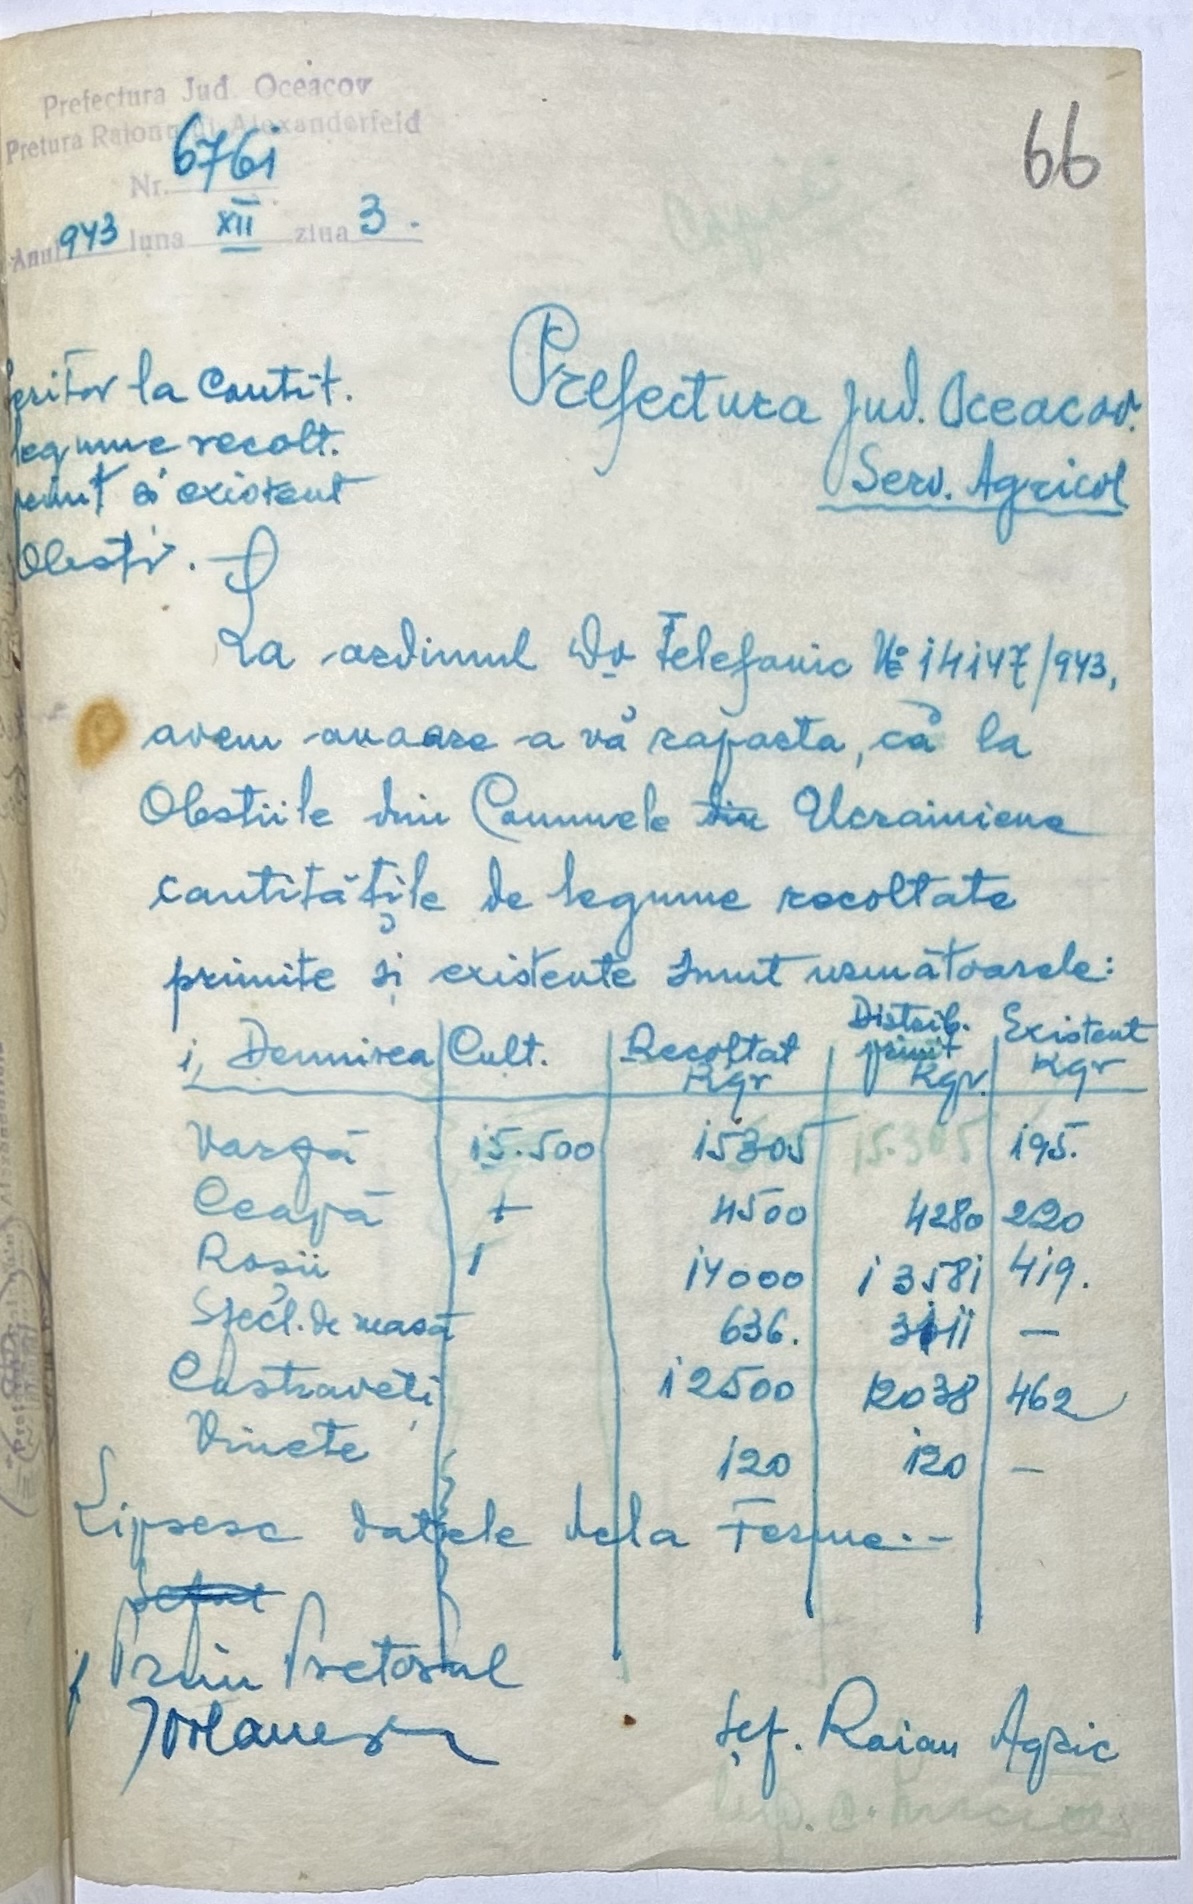 Prefectura Jud. Oceacov
Pretura Raionului Alexanderfeld
66
Nr. 6761
Anul 943 luna XII ziua 3.
feritor la Cantit.
legume recolt.
primit si existent
Obesti. –
Prefectura jud. Oceacov.
Serv. Agricol
La ordinul Dv Telefonic № 14147/943,
avem onoare a vă raporta, că la
Obstiile din Comunele din Ucrainiene
cantitățile de legume recoltate
primite și existente sunt următoarele:
1, Denumirea Cult. Recoltat Kgr Distrib. primit Kgr. Existent Kgr
Varză 15.500 15305 15.305 195.
Ceapă + 4500 4280 220
Roșii 1 14000 13581 419.
Sfecl. de masă 636. –
Castraveți 12500 12038 462
Vinete 120 120 –
Lipsesc datele dela Ferme. –
Seful
Prim Pretorul
Șef. Raion Agric